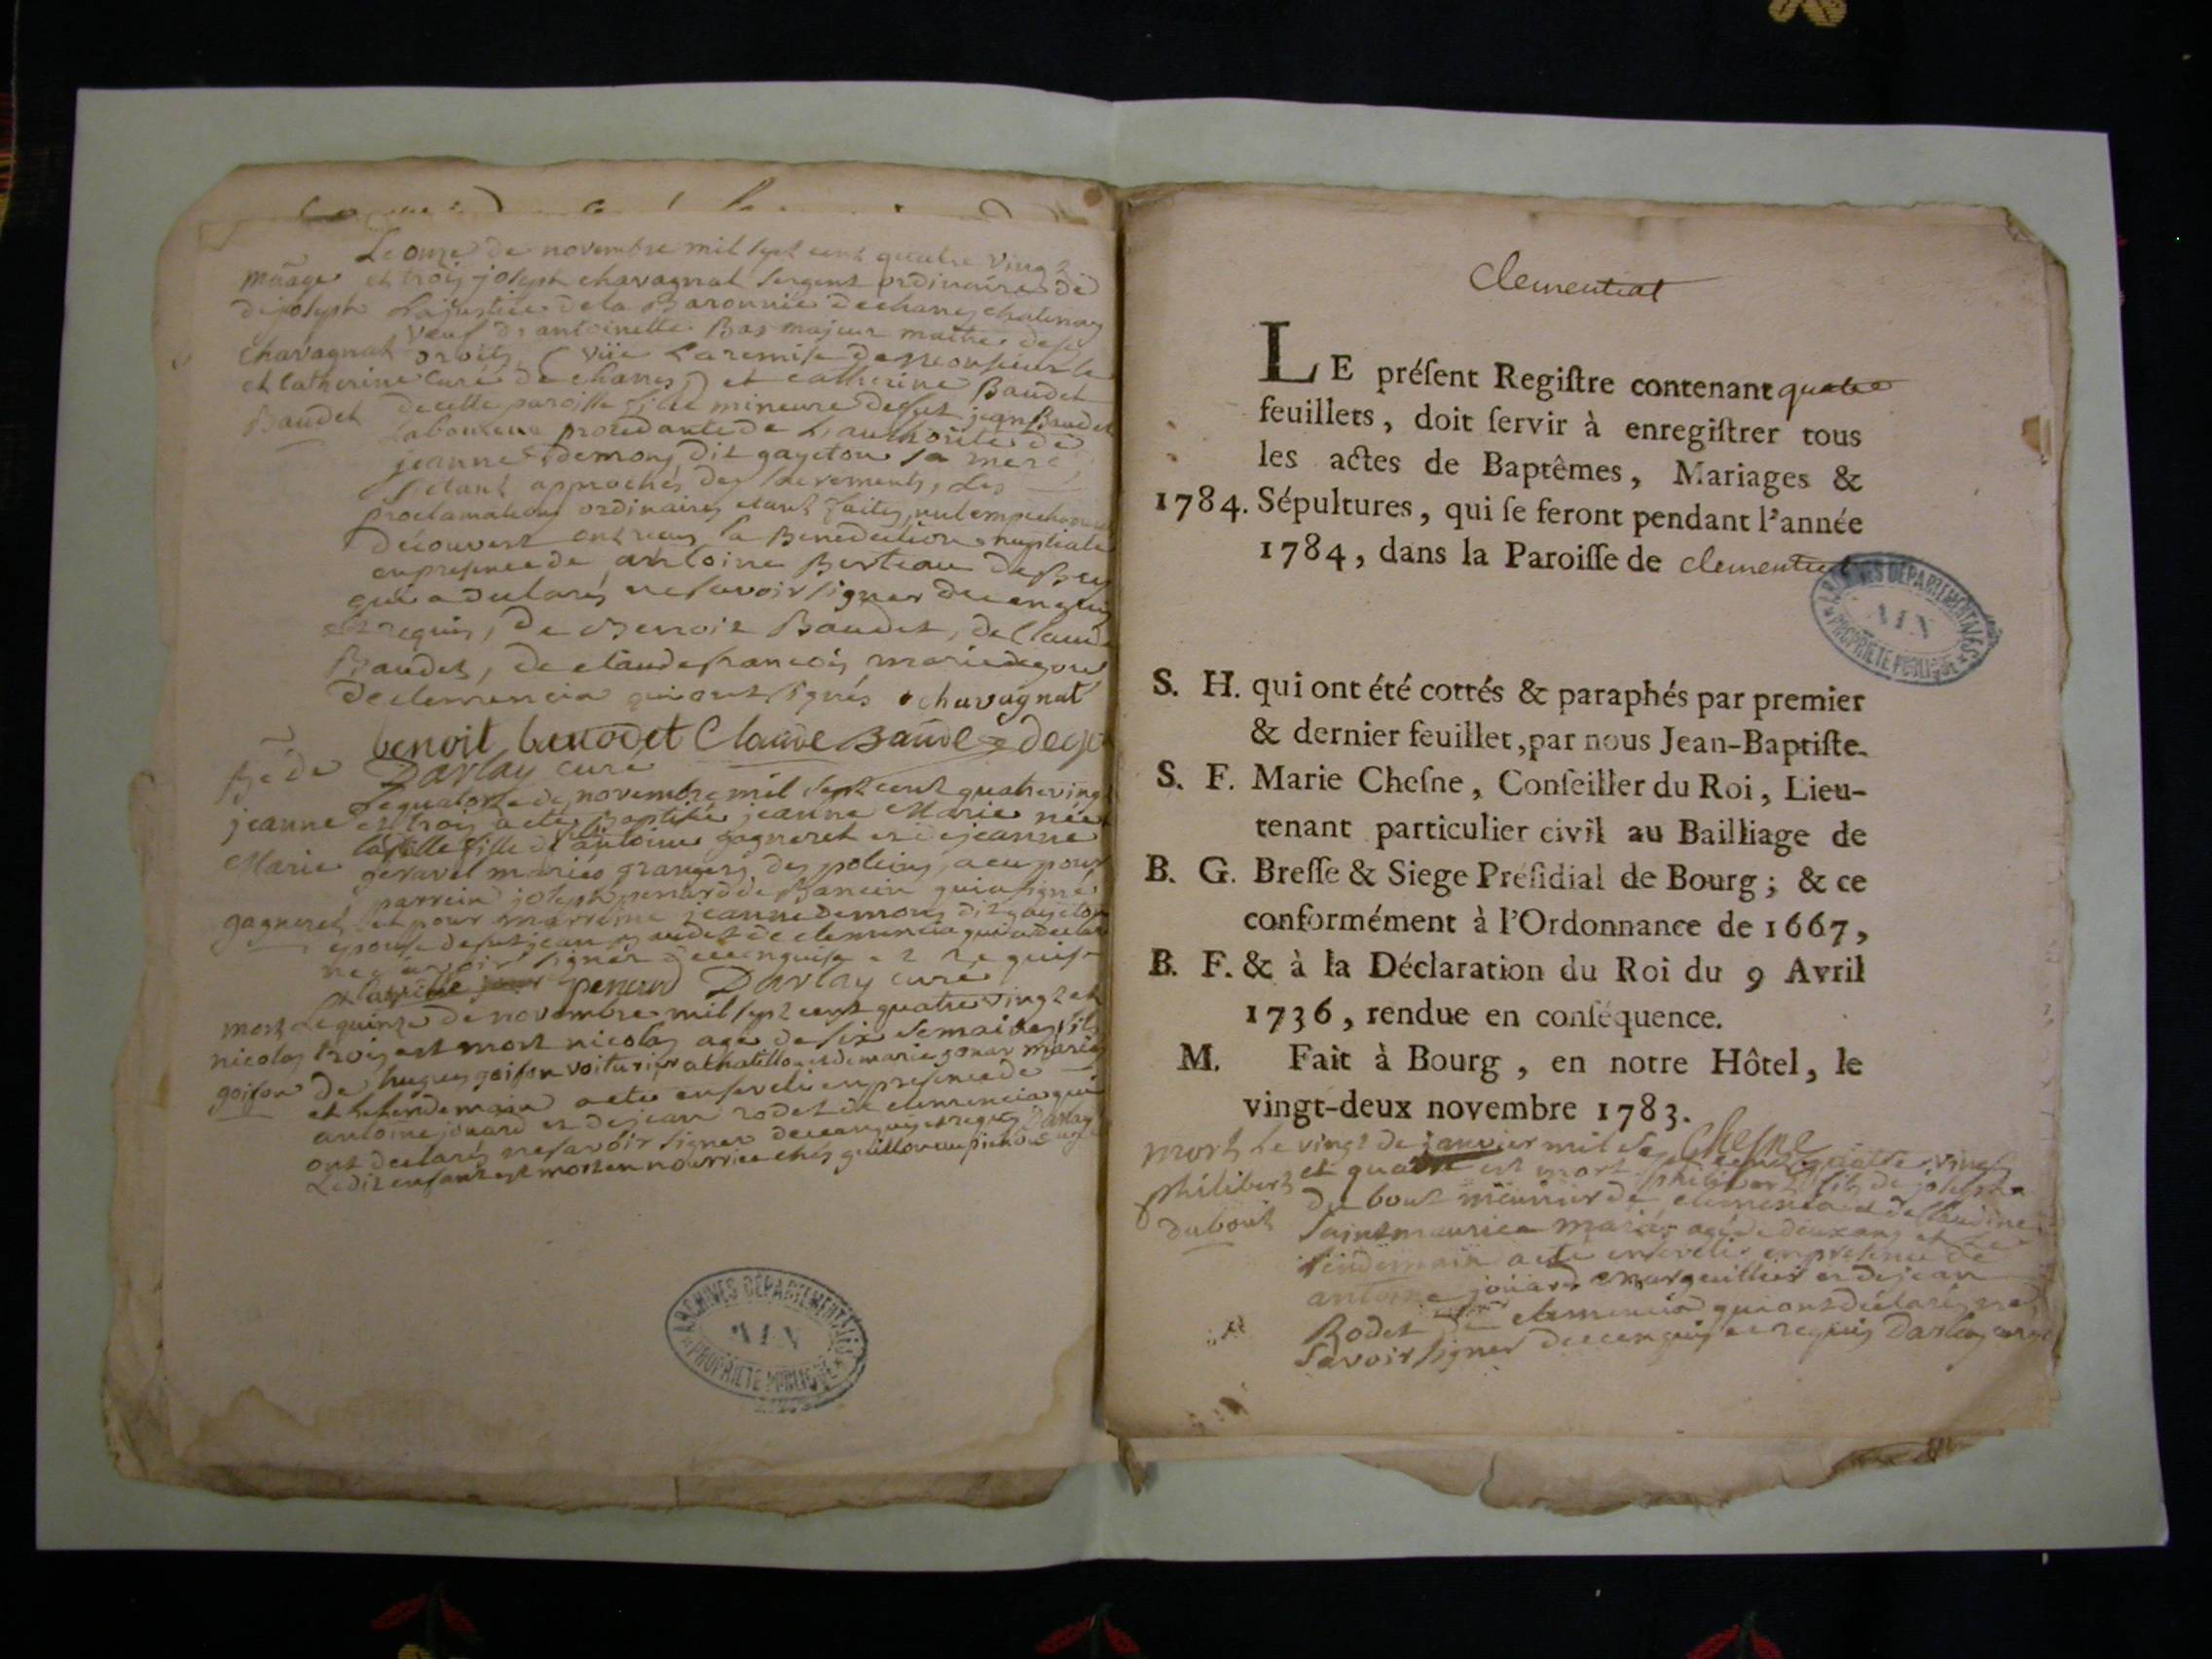 Le onze de novembre mil sept cent quatre vingt
mãage et trois joseph chavagnat sergent ordinaire de
de joseph la justice de la Baronnie de chanes chalenay
chavagnat veuf de antoinette Bas majeur maitre de ses
droits (vüe la remise de monsieur le
et catherine curé de chanes) et catherine Baudet
Baudet de cette paroisse fille mineure de fut jean Baudet
laboureur procedante de l'authorité de
jeanne demons dit gayeton sa mere
s'etant approchés des sacrements, les
proclamations ordinaires etant faites, nul empechement
découvert ont reçus la Benediction nuptiale
en presence de antoine Berteau de
qui a declarés ne savoir signer de ce enquis
et requis, de Benoit Baudet, de Claude
Baudet, de claude françois marie
de clemencia qui ont signés chavagnat
benoit baudet Claude Baudet
Darlay curé
Bẽ de
Le quatorze de novembre mil sept cent quatre vingt
jeanne et trois a eté Baptisée jeanne Marie née
la veille fille de antoine gagneret et de jeanne
Marie geravel mariés grangers des poleins, a eu pour
parrein joseph penard de Banein qui a signé
gagneret et pour marreine jeanne demons dit gayeton
epouse de fut jean Baudet de clemencia qui a declaré
ne savoir signer de ce enquise et requise
penard Darlay curé
mort Le quinze de novembre mil sept cent quatre vingt et
nicolas trois est mort nicolas agé de six semaines fils
goison de hugues goison voiturier a chatillon et de marie gonar mariés
et le lendemain a eté enseveli en presence de
antoine jouard et de jean rodet de clemencia qui
ont declarés ne savoir signer de ce enquis et requis Darlay
Le dit enfant est mort en nourrice chés
ARCHIVES DÉPARTEMENTALES
AIN
PROPRIÉTÉ PUBLIQUE
Clementiat
LE préſent Regiſtre contenant quatre
feuillets, doit ſervir à enregiſtrer tous
les actes de Baptêmes, Mariages &
1784. Sépultures, qui ſe feront pendant l'année
1784, dans la Paroiſſe de clementiat
ARCHIVES DÉPARTEMENTALES
AIN
PROPRIÉTÉ PUBLIQUE
S. H. qui ont été cottés & paraphés par premier
& dernier feuillet, par nous Jean-Baptiſte-
S. F. Marie Cheſne, Conſeiller du Roi, Lieu-
tenant particulier civil au Bailliage de
B. G. Breſſe & Siege Préſidial de Bourg; & ce
conformément à l'Ordonnance de 1667,
B. F. & à la Déclaration du Roi du 9 Avril
1736, rendue en conſéquence.
M. Fait à Bourg, en notre Hôtel, le
vingt-deux novembre 1783.
Chesne
mort Le vingt de janvier mil sept cent quatre vingt
philibert et quatre est mort philibert fils de joseph
dubout du bout meunier de clemencia et de claudine
saint maurice mariés agé de deux ans et le
lendemain a eté enseveli en presence de
antoine jouard marguillier et de jean
Rodet de clemencia qui ont déclarés ne
savoir signer de ce enquis et requis Darlay curé